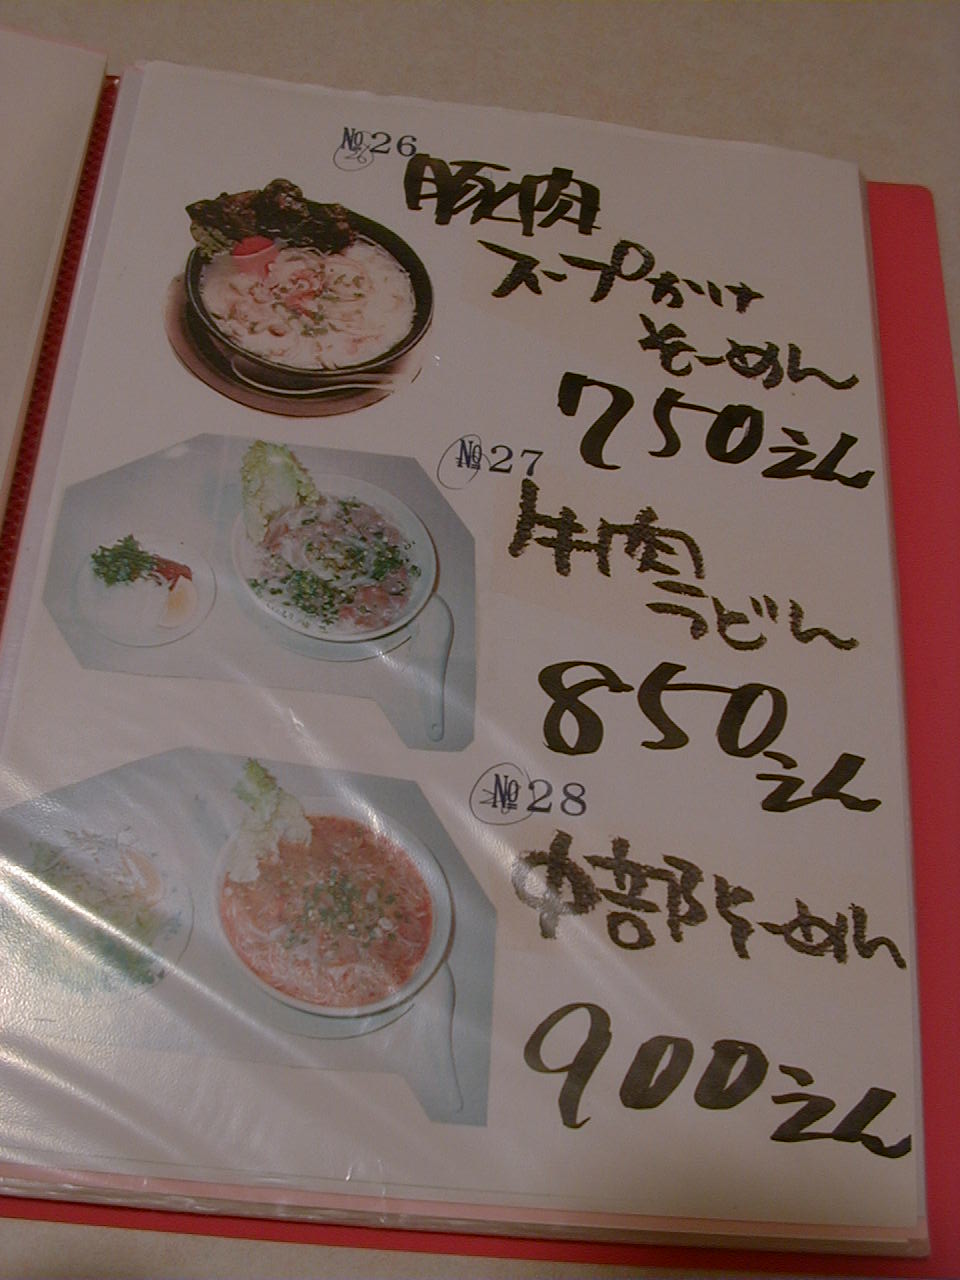 №26
豚肉
スープかけ
そーめん
750えん
№27
牛肉
うどん
850えん
№28
中部らーめん
900えん